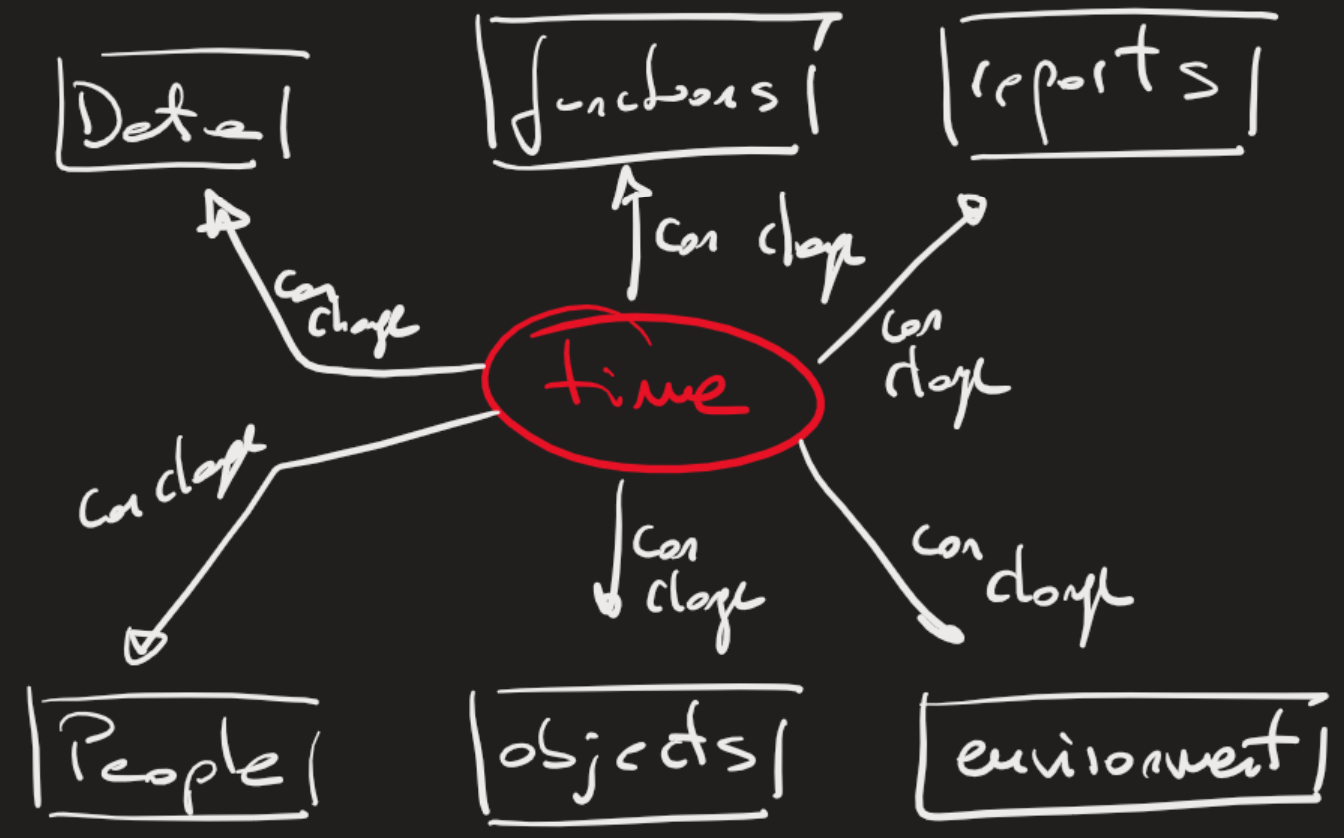 Data
functions
reports
can change
can
change
can
change
time
can change
can
change
can
change
People
objects
environment